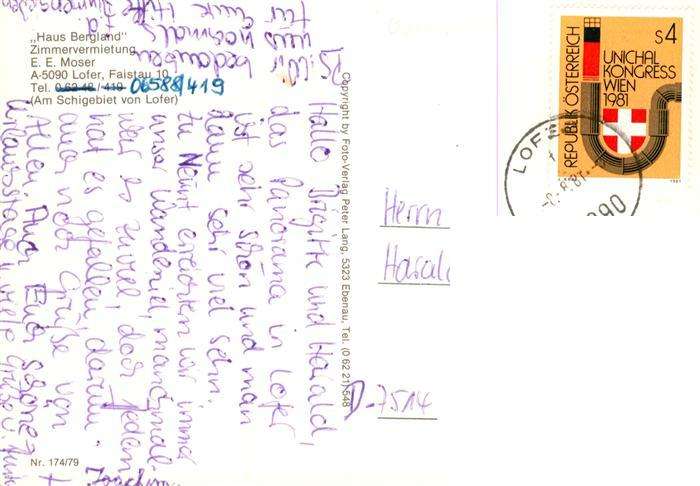 „Haus Bergland"
Zimmervermietung
E. E. Moser
A-5090 Lofer, Faistau 10
Tel. 0 62 48 / 419 06588/419
(Am Schigebiet von Lofer)
Nr. 174/79
Copyright by Foto-Verlag Peter Lang, 5323 Ebenau, Tel. (0 62 21) 548
Hallo Brigitte und Harald,
das Panorama in Lofer
ist sehr schön und man
kann sehr viel sehn.
Zu Neunt erreichten wir immer
unser Wanderziel, manchmal
war es zuviel doch jeden
hat es gefallen, darum
auch Grüße von
Allen. Auch Euch schöne
Urlaubstage u. viele Grüße
PS: Wir bedanken
uns nochmals
für Eure
Herrn
Haral
D-7514
S4
UNICHAL
KONGRESS
WIEN
1981
REPUBLIK ÖSTERREICH
1981
LOFE
090